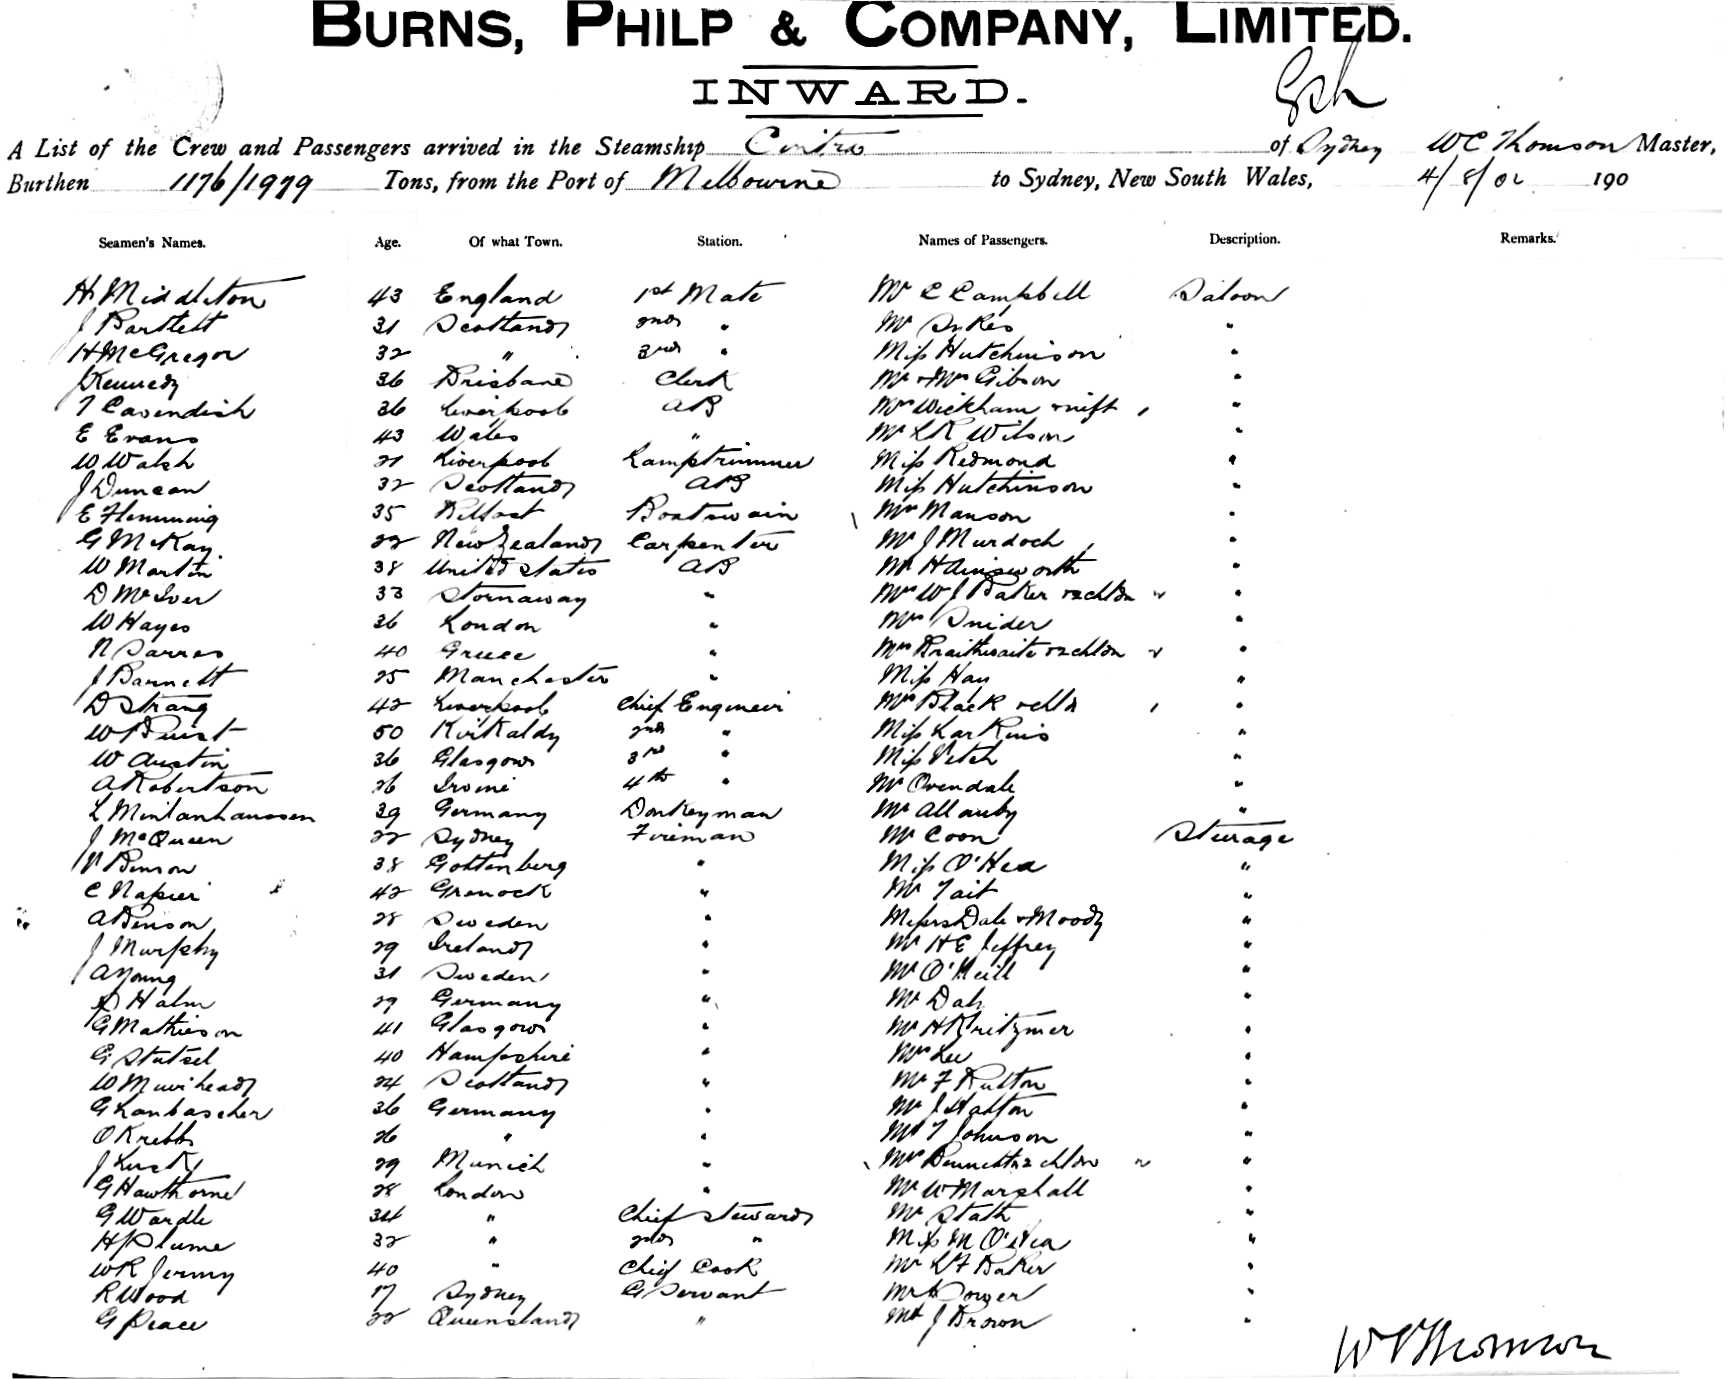 BURNS, PHILP & COMPANY, LIMITED.
INWARD.
A List of the Crew and Passengers arrived in the Steamship Cintra of Sydney W C Thomson Master,
Burthen 1176/1979 Tons, from the Port of Melbourne to Sydney, New South Wales, 4/8/02 190
Seamen's Names. Age. Of what Town. Station. Names of Passengers. Description. Remarks.
H Middleton 43 England 1st Mate Mr C Campbell Saloon
J Bartlett 31 Scotland 2nd " Mr Sykes "
H McGregor 32 " 3rd " Miss Hutchinson "
J Kennedy 36 Brisbane Clerk Mr & Mrs Gibson "
T Cavendish 36 Liverpool AB Mrs Wickham & inft "
E Evans 43 Wales " Mr L R Wilson "
W Walsh 21 Liverpool Lamptrimmer Miss Redmond "
J Duncan 32 Scotland AB Miss Hutchinson "
E Flemming 35 Belfast Boatswain Mrs Manson "
G McKay 22 New Zealand Carpenter Mr J Murdoch "
W Martin 38 United States AB Mr H Ainsworth "
D McIver 33 Stornaway " Mrs W J Baker & 2 chldn "
W Hayes 36 London " Mrs Snider "
N Sarras 40 Greece " Mrs Braithwaite & 2 chldn "
J Barnett 25 Manchester " Miss Hay "
D Strang 42 Liverpool Chief Engineer Mrs Black & chld "
W Buist 50 Kirkaldy 2nd " Miss Larkins "
W Austin 36 Glasgow 3rd " Miss Vetch "
A Robertson 26 Irvine 4th " Mr Ovendale "
L Mintanhaussen 39 Germany Donkeyman Mr Allanby "
J McQueen 22 Sydney Fireman Mr Coon Steerage
P Benson 38 Gottenberg " Miss O'Hea "
C Napier 42 Grenock " Mr Tait "
A Benson 28 Sweden " Messrs Dale & Moody "
J Murphy 29 Ireland " Mr H E Jeffrey "
A Young 31 Sweden " Mr O'Neill "
Halm 29 Germany " Mr "
G Mathieson 41 Glasgow " Mr H Kritzmer "
G Stutsel 40 Hampshire " Mrs Lee "
W Muirhead 24 Scotland " Mr F Rutton "
G Lanbascher 36 Germany " Mr J Hatton "
O Krebbs 26 " " Mr T Johnson "
J Lusky 29 Munich " Mrs Bennett & 2 chldn "
G Hawthorne 28 London " Mr W Marshall "
G Wardle 34 " Chief Steward Mr Stath "
H J Plume 32 " 2nd " Miss M O'Hea "
W R Jermy 40 " Chief Cook Mr L F Baker "
R Wood 17 Sydney G Servant Mr Power "
G Peace 22 Queensland " Mr J Brown "
W C Thomson